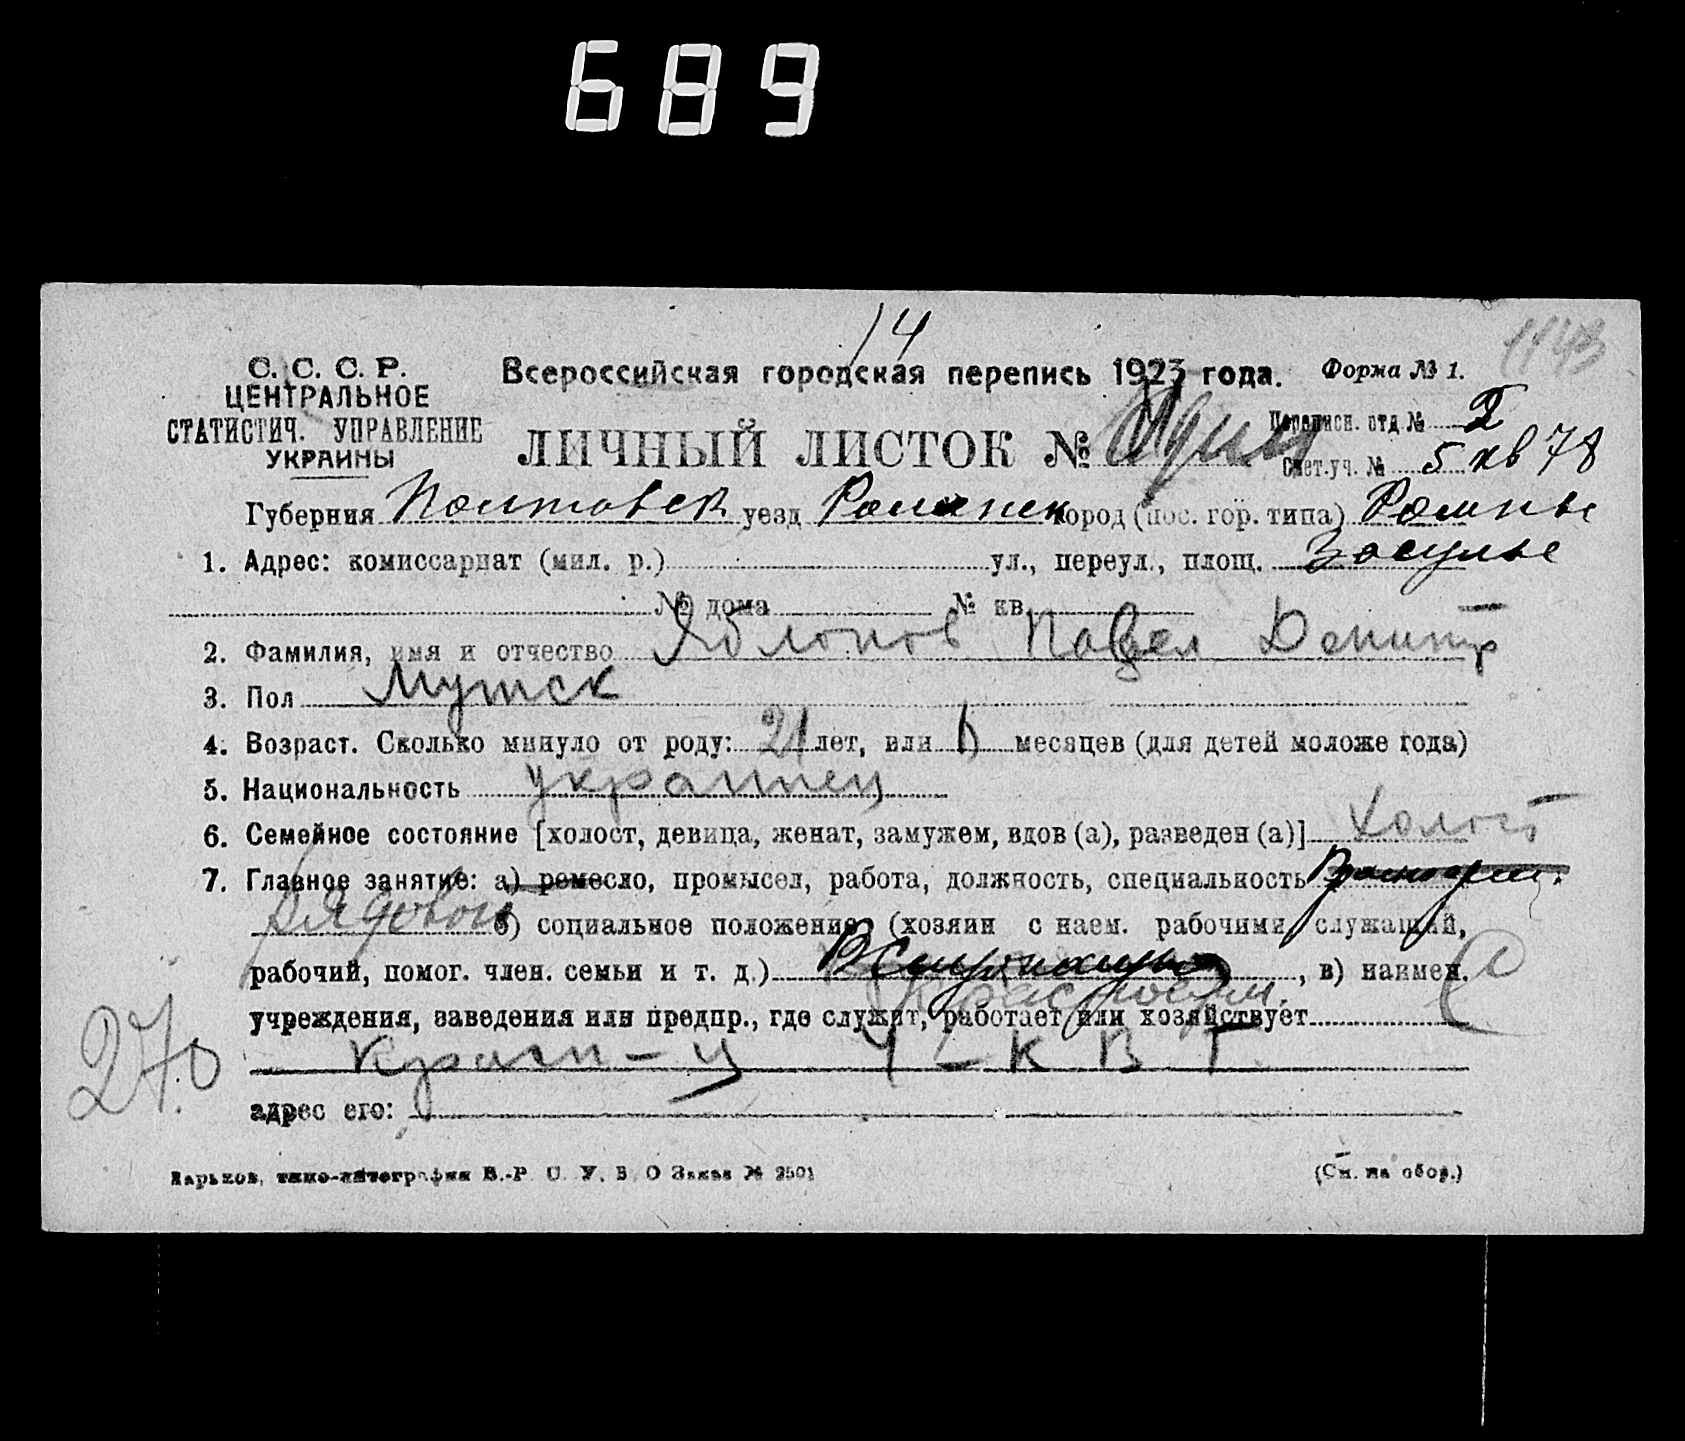 689
14
1143
С. С. С. Р.
ЦЕНТРАЛЬНОЕ
СТАТИСТИЧ. УПРАВЛЕНИЕ
УКРАИНЫ
Всероссийская городская перепись 1923 года.
Форма № 1.
ЛИЧНЫЙ ЛИСТОК № Один
Переписн. отд №
Счет. уч. № 5 кв 78
Губерния Полтавск уезд Роменск город (пос. гор. типа) Ромны
1. Адрес: комиссариат (мил. р.) ул., переул., площ. Засулье
№ дома № кв
2. Фамилия, имя и отчество Яблонов Павел Демитр
3. Пол Мужск
4. Возраст. Сколько минуло от роду: 21 лет, или месяцев (для детей моложе года)
5. Национальность украинец
6. Семейное состояние [холост, девица, женат, замужем, вдов (а), разведен (а)] холост
7. Главное занятие: а) ремесло, промысел, работа, должность, специальность
рядовой б) социальное положение (хозяин с наем. рабочими, служащий,
рабочий, помог. член. семьи и т. д.) , в) наимен.
Красноарм.
учреждения, заведения или предпр., где служит, работает или хозяйствует
270
адрес его:
Харьков, типо-литография В.-Р. С. У. В. О Заказ № 2501
(См. на обор.)